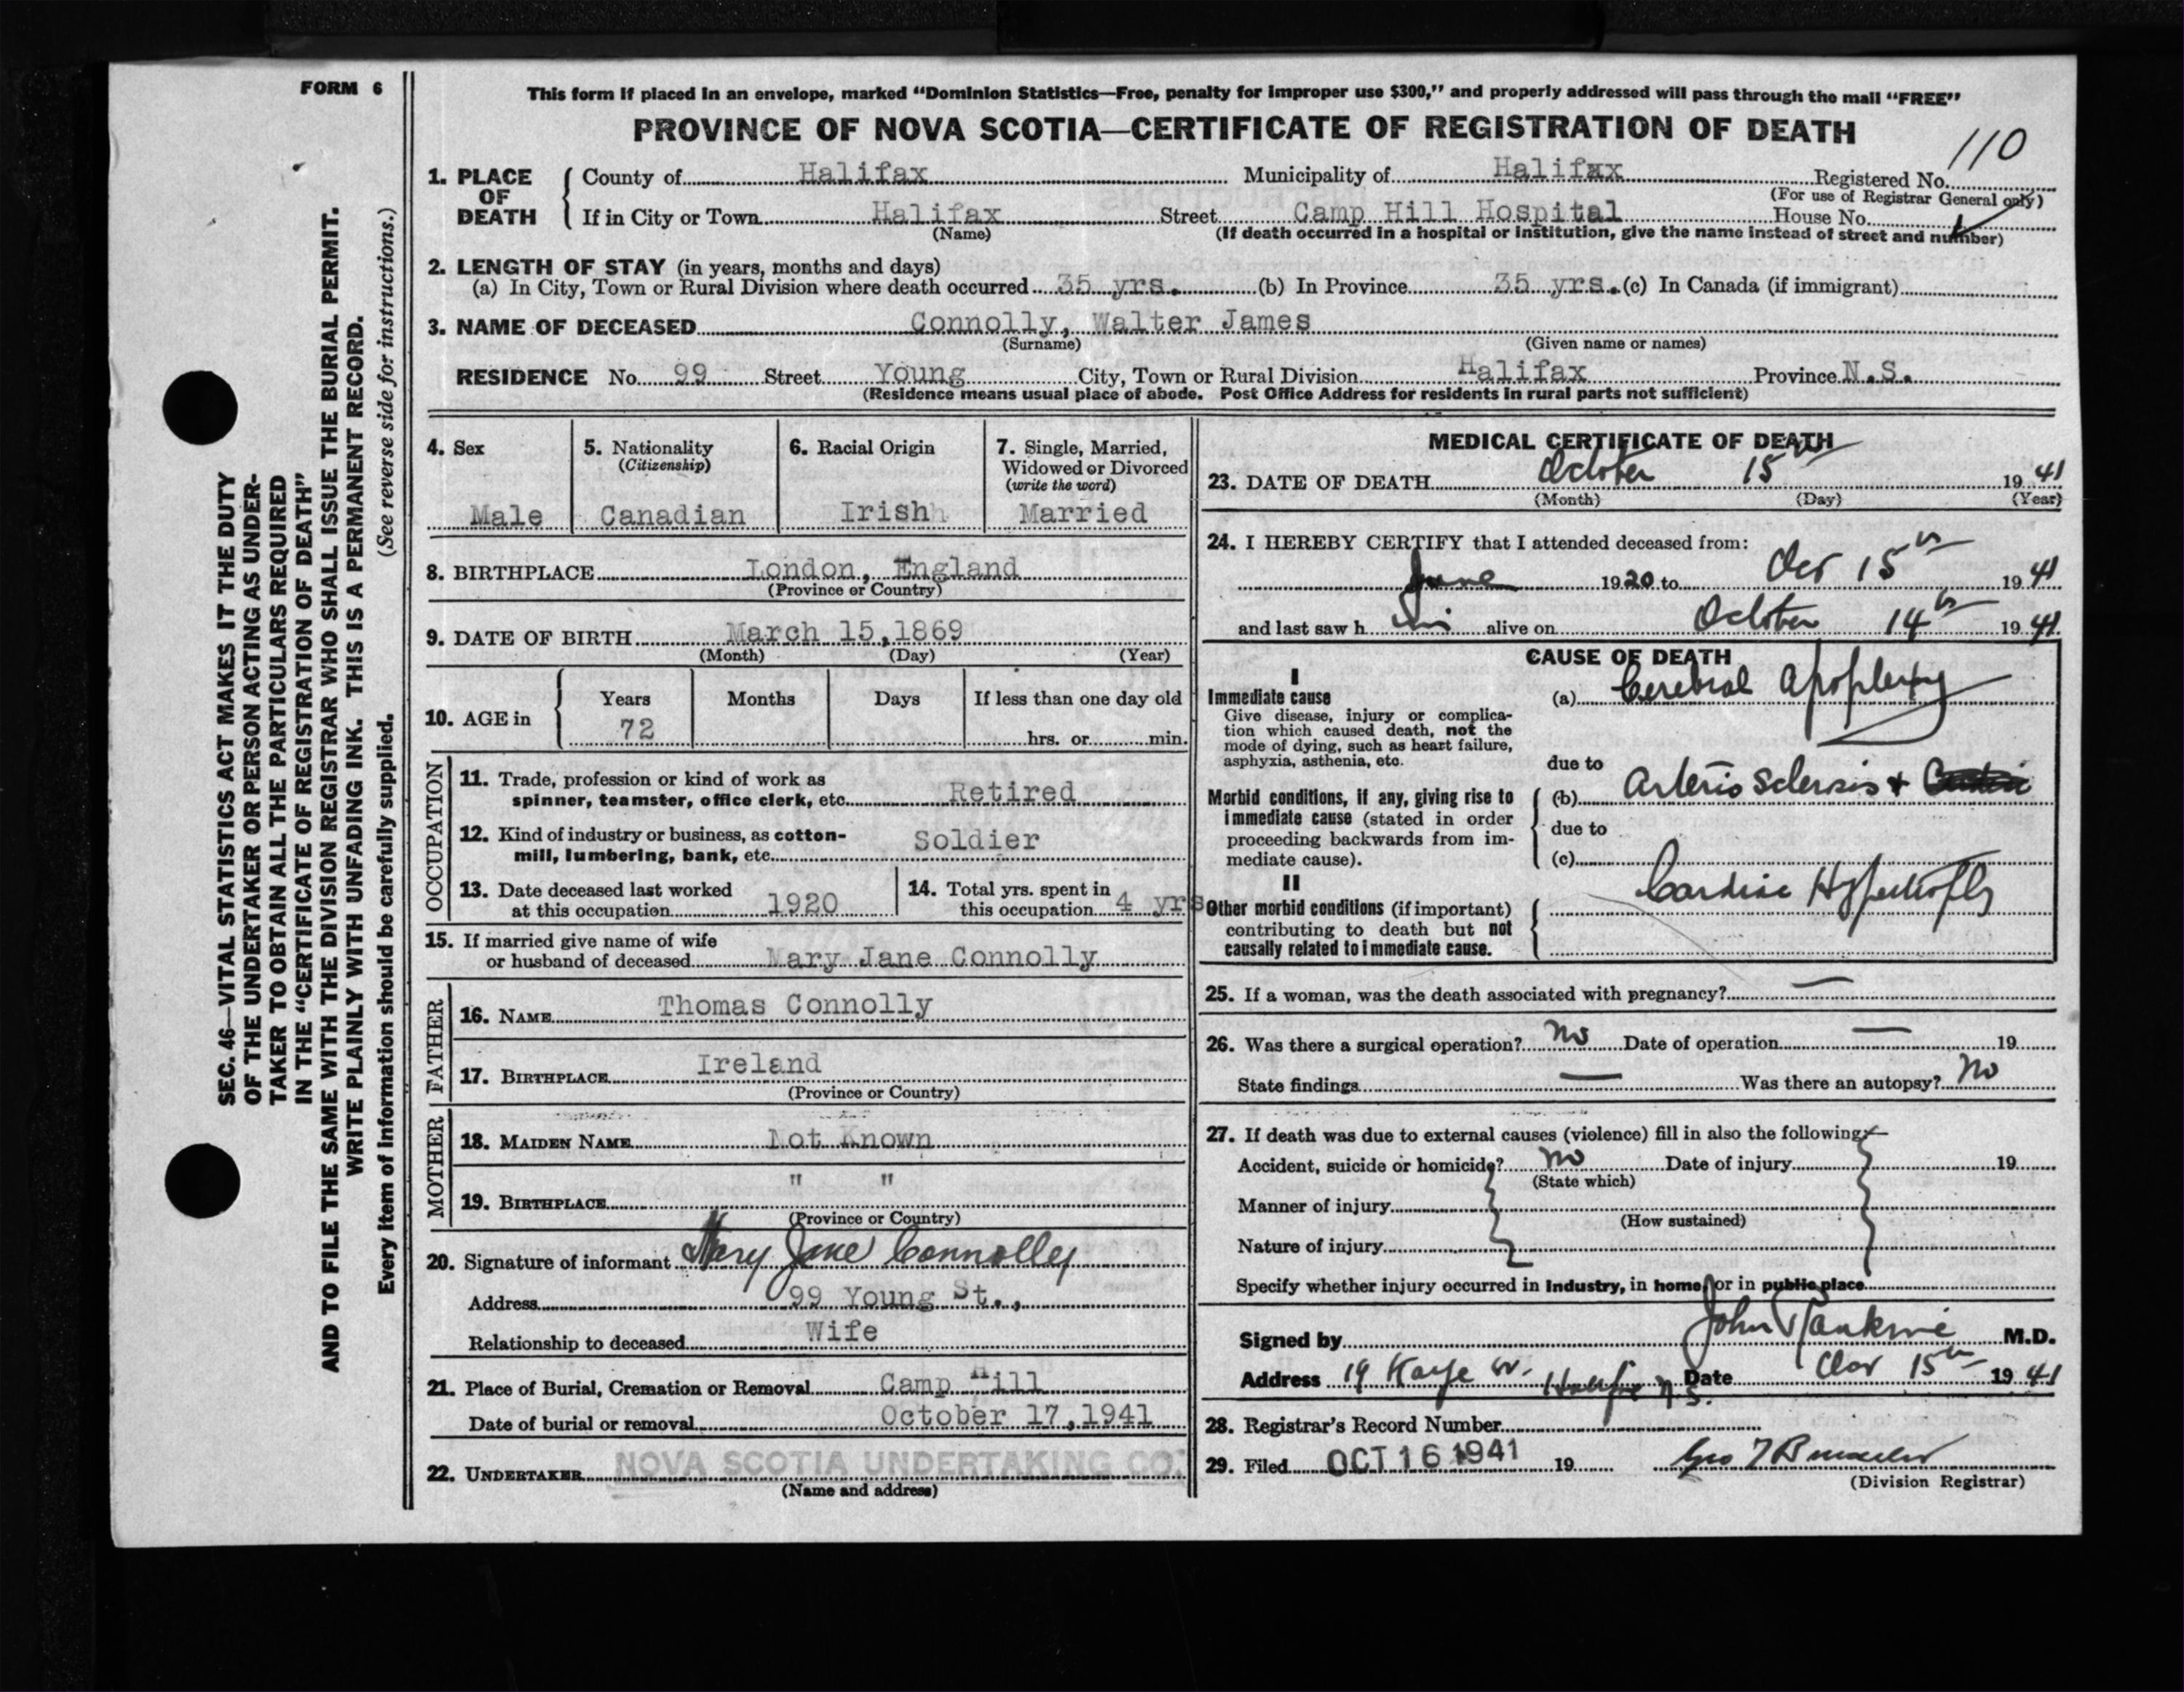 FORM 6
This form if placed in an envelope, marked “Dominion Statistics—Free, penalty for improper use $300,” and properly addressed will pass through the mail “FREE”
PROVINCE OF NOVA SCOTIA—CERTIFICATE OF REGISTRATION OF DEATH
110
1. PLACE OF DEATH { County of Halifax Municipality of Halifax Registered No.
(For use of Registrar General only)
If in City or Town Halifax Street Camp Hill Hospital House No.
(Name) (If death occurred in a hospital or institution, give the name instead of street and number)
2. LENGTH OF STAY (in years, months and days)
(a) In City, Town or Rural Division where death occurred 35 yrs. (b) In Province 35 yrs. (c) In Canada (if immigrant)
3. NAME OF DECEASED Connolly, Walter James
(Surname) (Given name or names)
RESIDENCE No. 99 Street Young City, Town or Rural Division Halifax Province N.S.
(Residence means usual place of abode. Post Office Address for residents in rural parts not sufficient)
4. Sex
Male
5. Nationality
(Citizenship)
Canadian
6. Racial Origin
Irish
7. Single, Married,
Widowed or Divorced
(write the word)
Married
8. BIRTHPLACE London, England
(Province or Country)
9. DATE OF BIRTH March 15,1869
(Month) (Day) (Year)
10. AGE in { Years Months Days If less than one day old
72 hrs. or min.
OCCUPATION
11. Trade, profession or kind of work as
spinner, teamster, office clerk, etc. Retired
12. Kind of industry or business, as cotton-
mill, lumbering, bank, etc. Soldier
13. Date deceased last worked
at this occupation 1920
14. Total yrs. spent in
this occupation 4 yrs
15. If married give name of wife
or husband of deceased Mary Jane Connolly
FATHER
16. NAME Thomas Connolly
17. BIRTHPLACE Ireland
(Province or Country)
MOTHER
18. MAIDEN NAME Not Known
19. BIRTHPLACE " "
(Province or Country)
20. Signature of informant Mary Jane Connolley
Address 99 Young St.,
Relationship to deceased Wife
21. Place of Burial, Cremation or Removal Camp Hill
Date of burial or removal October 17,1941
22. UNDERTAKER NOVA SCOTIA UNDERTAKING CO.
(Name and address)
MEDICAL CERTIFICATE OF DEATH
23. DATE OF DEATH October 15th 1941
(Month) (Day) (Year)
24. I HEREBY CERTIFY that I attended deceased from:
June 1920 to Oct 15th 1941
and last saw him alive on October 14th 1941
CAUSE OF DEATH
I
Immediate cause
Give disease, injury or complica-
tion which caused death, not the
mode of dying, such as heart failure,
asphyxia, asthenia, etc.
(a) Cerebral Apoplexy
due to
Morbid conditions, if any, giving rise to
immediate cause (stated in order
proceeding backwards from im-
mediate cause).
(b) Arterio Sclerosis +
due to
(c)
II
Other morbid conditions (if important)
contributing to death but not
causally related to immediate cause.
Cardiac Hypertrophy
25. If a woman, was the death associated with pregnancy? —
26. Was there a surgical operation? No Date of operation — 19
State findings — Was there an autopsy? No
27. If death was due to external causes (violence) fill in also the following:—
Accident, suicide or homicide? No Date of injury 19
(State which)
Manner of injury
(How sustained)
Nature of injury
Specify whether injury occurred in industry, in home, or in public place
Signed by John Rankine M.D.
Address 19 Kaye St. Halifax N.S. Date Oct 15th 1941
28. Registrar's Record Number
29. Filed OCT 16 1941 19
(Division Registrar)
SEC. 46—VITAL STATISTICS ACT MAKES IT THE DUTY
OF THE UNDERTAKER OR PERSON ACTING AS UNDER-
TAKER TO OBTAIN ALL THE PARTICULARS REQUIRED
IN THE “CERTIFICATE OF REGISTRATION OF DEATH”
AND TO FILE THE SAME WITH THE DIVISION REGISTRAR WHO SHALL ISSUE THE BURIAL PERMIT.
WRITE PLAINLY WITH UNFADING INK. THIS IS A PERMANENT RECORD.
Every item of information should be carefully supplied. (See reverse side for instructions.)